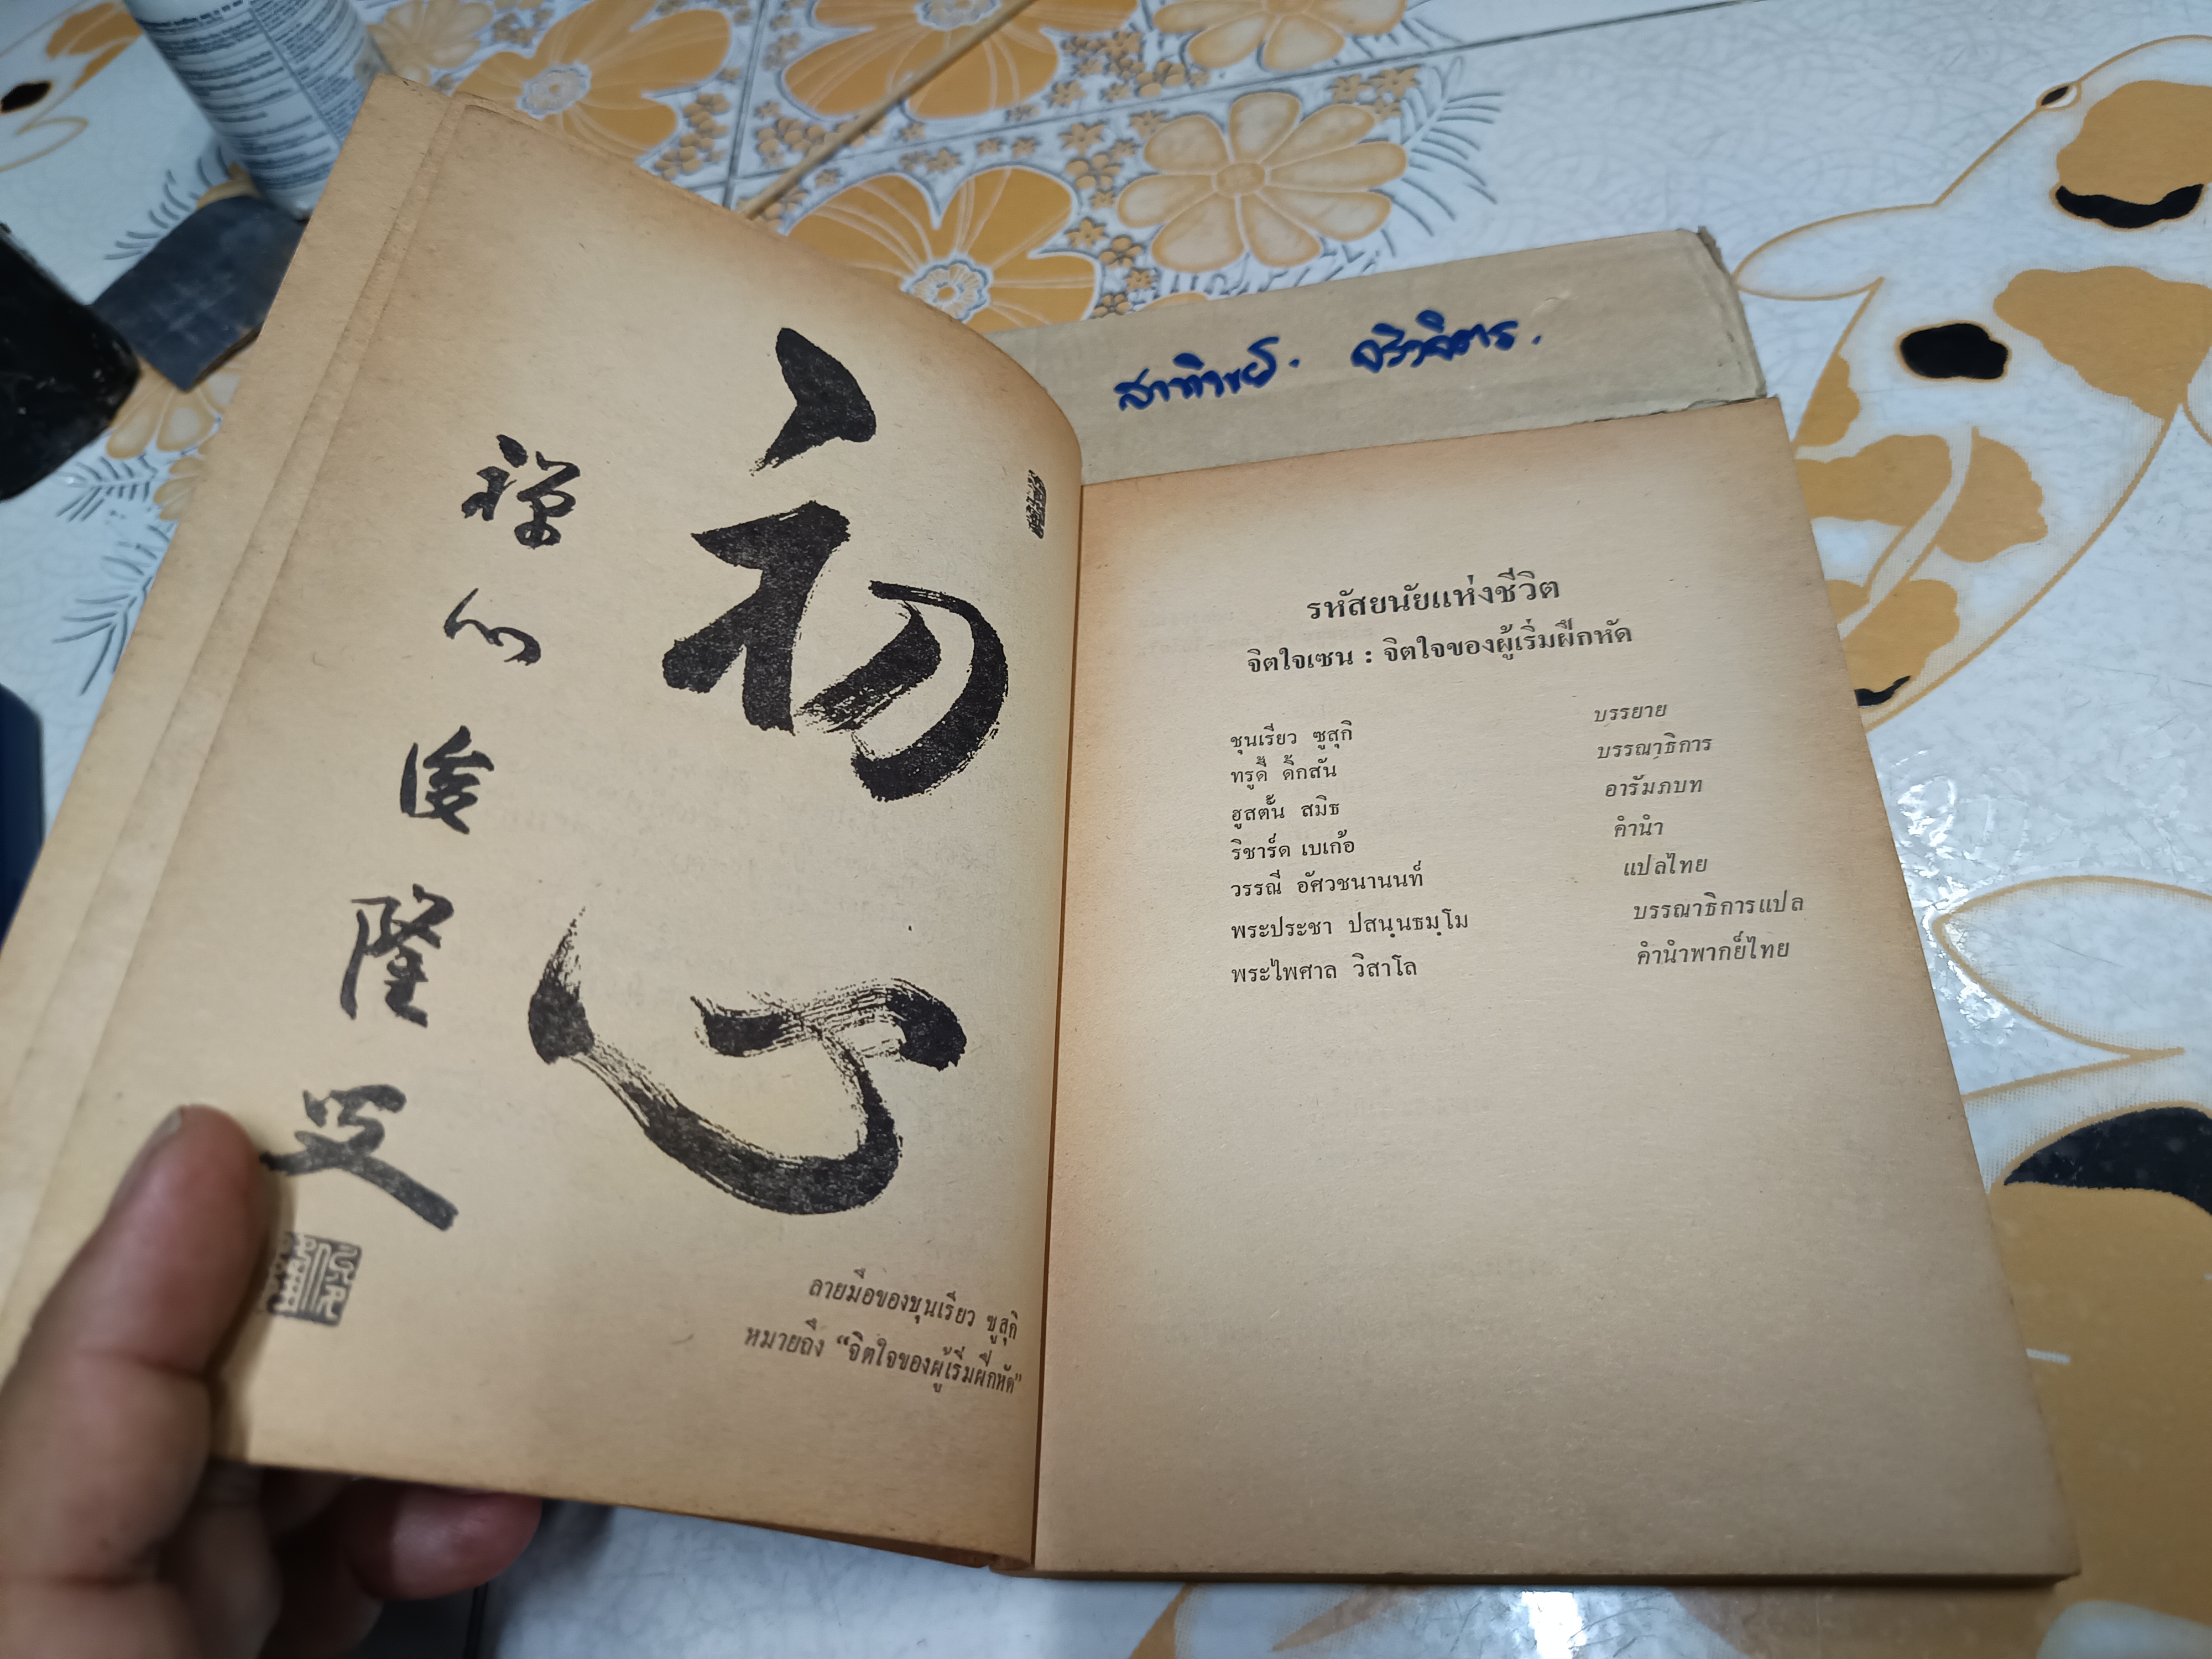 初心
禅心俊隆
ลายมือของชุนเรียว ซูสุกิ
หมายถึง “จิตใจของผู้เริ่มฝึกหัด”
รหัสยนัยแห่งชีวิต
จิตใจเซน : จิตใจของผู้เริ่มฝึกหัด
ชุนเรียว ซูสุกิ บรรยาย
ทรูดี้ ดิ๊กสัน บรรณาธิการ
ฮูสตั้น สมิธ อารัมภบท
ริชาร์ด เบเก้อ คำนำ
วรรณี อัศวชนานนท์ แปลไทย
พระประชา ปสนฺนธมฺโม บรรณาธิการแปล
พระไพศาล วิสาโล คำนำพากย์ไทย